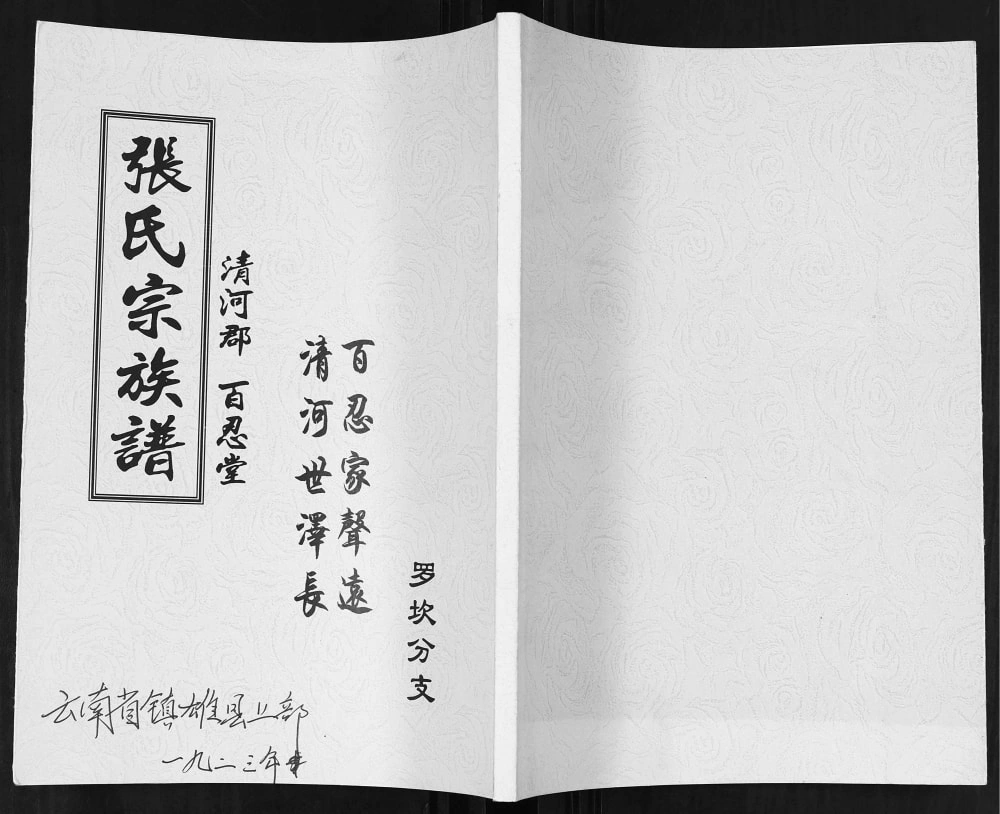 張氏宗族譜
清河郡 百忍堂
百忍家聲遠
清河世澤長
罗坎分支
云南省镇雄县
一九二三年